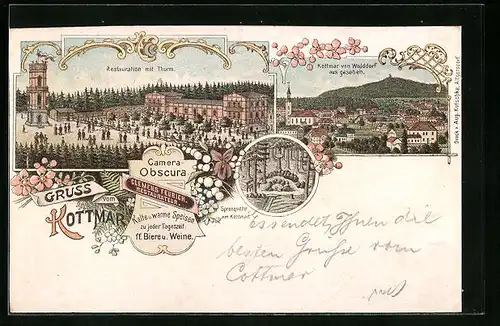 Restauration mit Thurm.
Kottmar von Walddorf
aus gesehen.
Camera
Obscura
GRUSS
vom
KOTTMAR
Kalte u. warme Speisen
zu jeder Tageszeit
ff. Biere u. Weine.
Spreequelle
am Kottmar.
Es sendet Ihnen die
besten Grüße vom
Cottmar
Druck v. Aug. Kietschke,